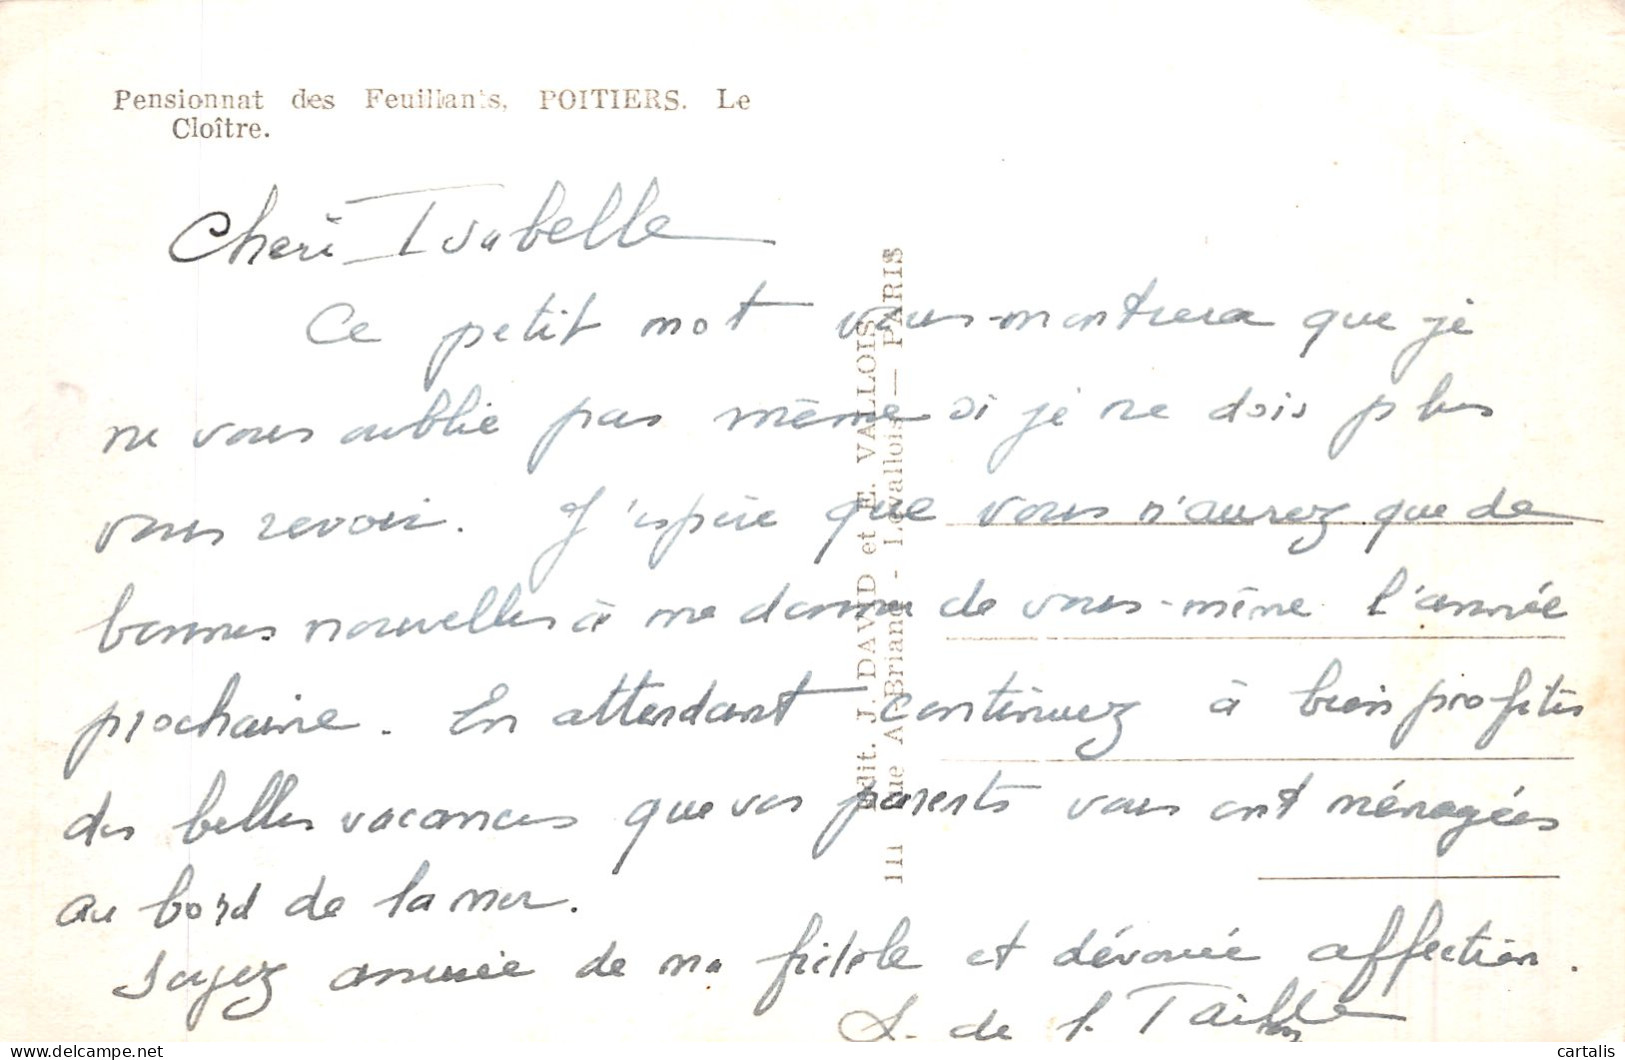 Pensionnat des Feuillants, POITIERS. Le
Cloître.
Cheri Isabelle
Ce petit mot vous montrera que je
ne vous oublie pas même si je ne dois plus
vous revoir. J'espère que vous n'aurez que de
bonnes nouvelles à me donner de vous-même l'année
prochaine. En attendant continuez à bien profiter
des belles vacances que vos parents vous ont ménagées
au bord de la mer.
Soyez assurée de ma fidèle et dévouée affection.
de Taille
Edit. J. DAVID et E. VALLOIS
111 rue A. Briand - Levallois — PARIS
cartalis